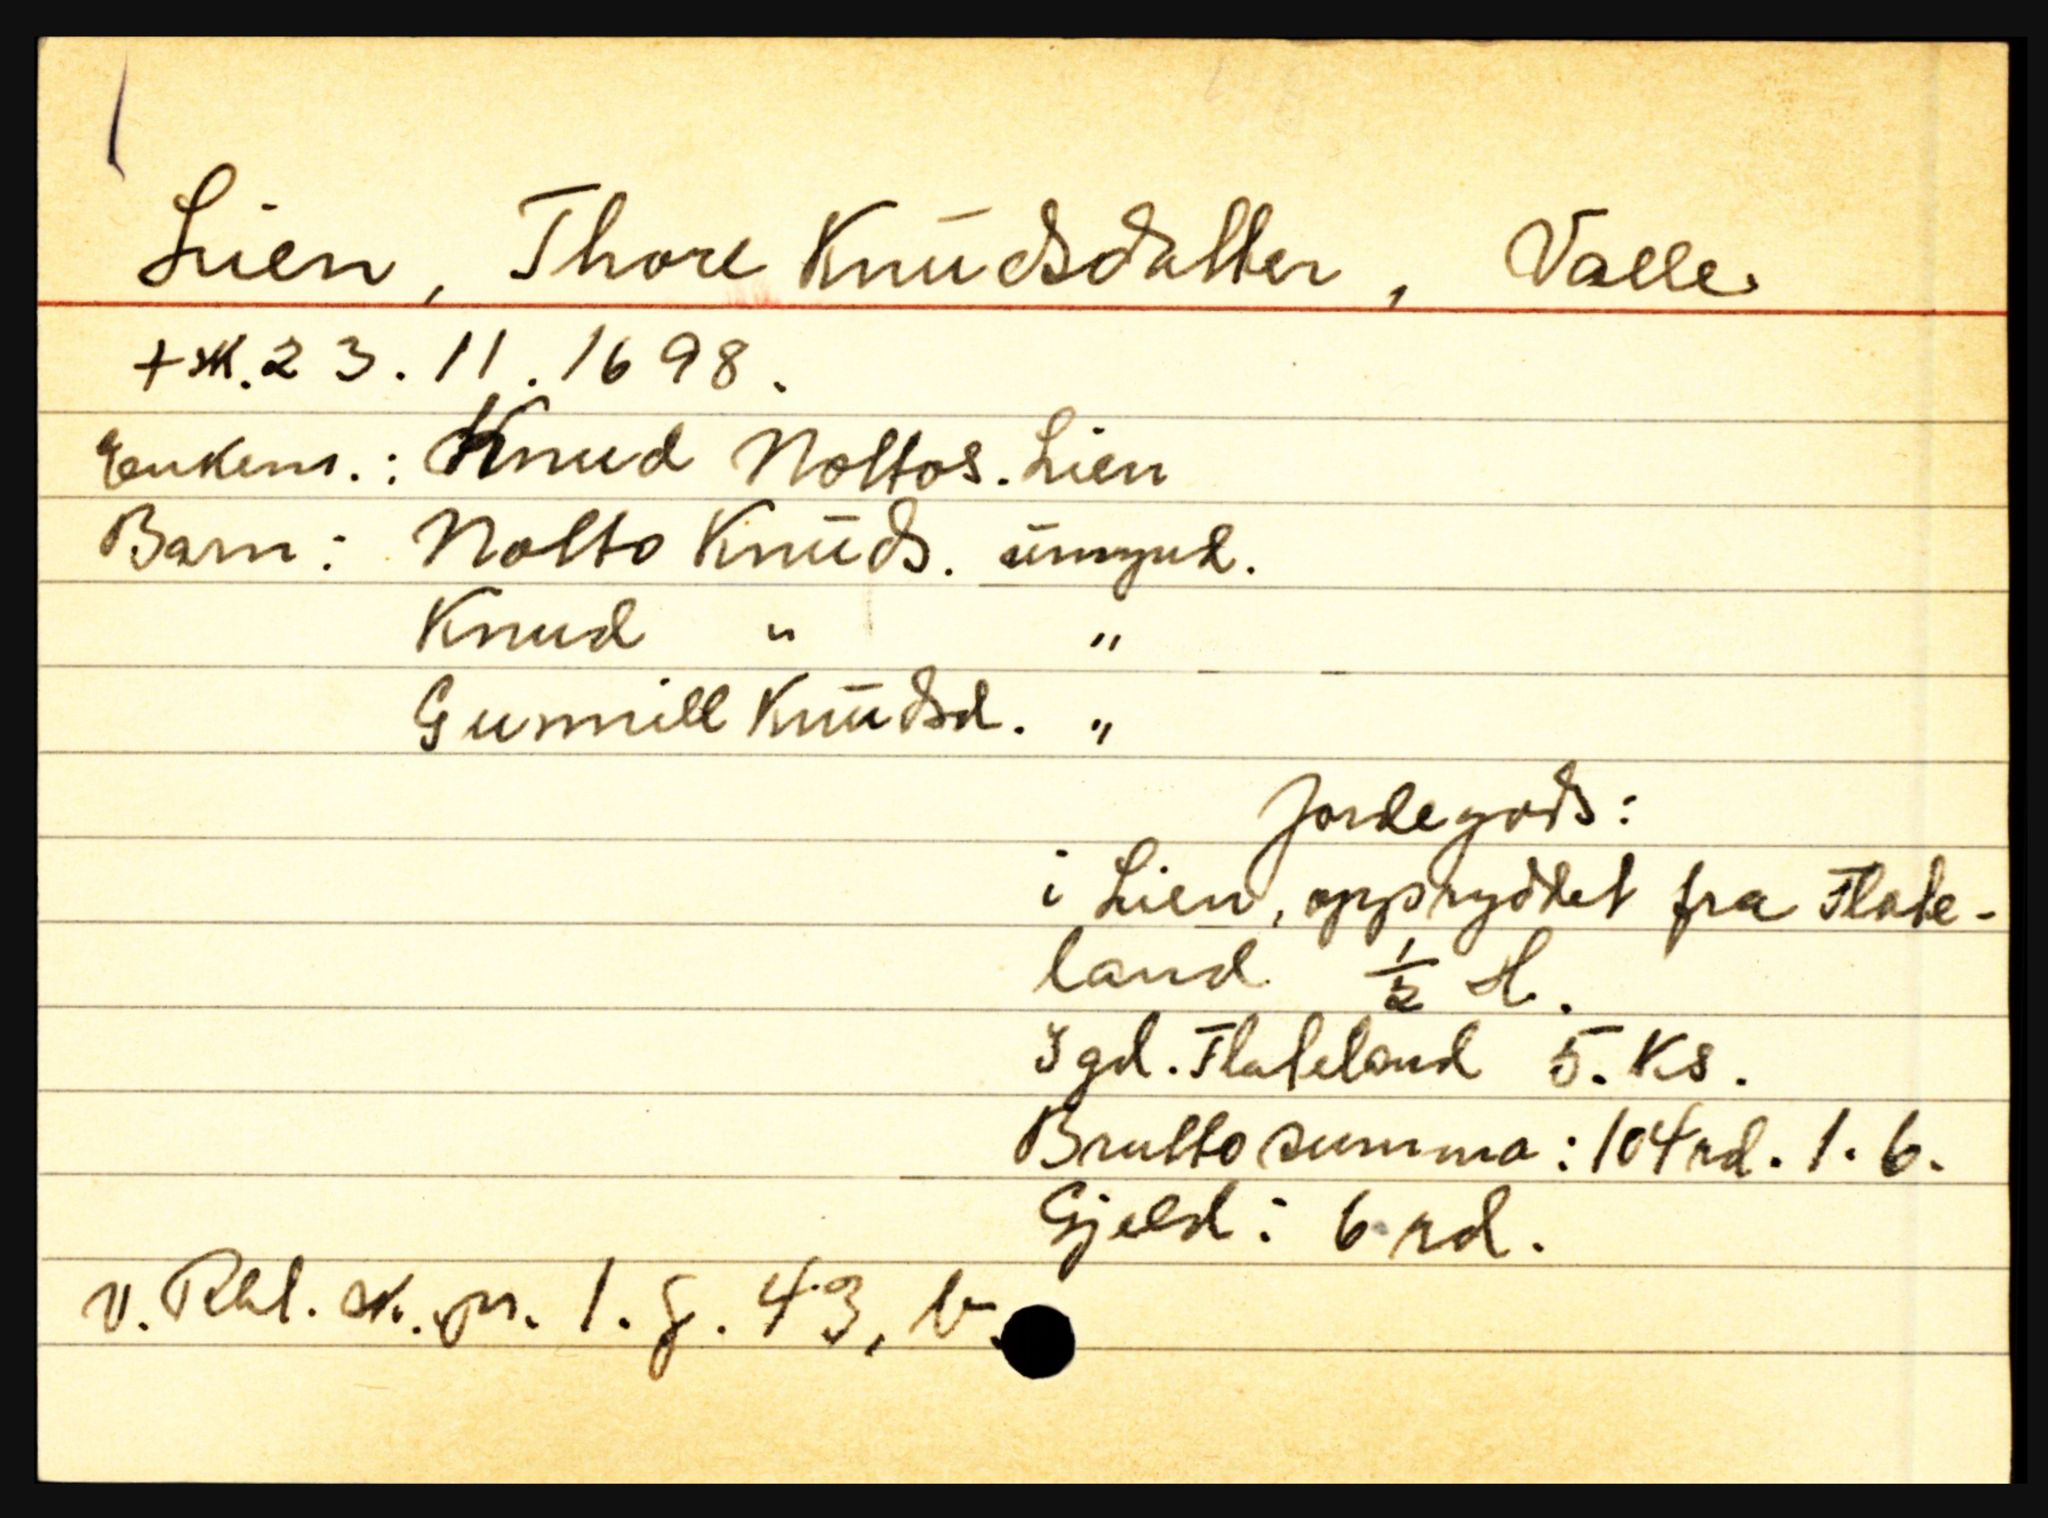 Lien, Thore Knudsdatter, Valle
+ sk. 23.11.1698.
Enkem.: Knud Noltos. Lien
Barn: Nolto Knuds. umynd.
Knud " "
Gunnill Knudsd. "
Jordegods:
i Lien, oppryddet fra Flate-
land ½ H.
I gd. Flateland 5. Ks.
Bruttosumma: 104 rd. 1. 6.
Gjeld: 6 rd.
v. Rbl. sk. pr. 1. f. 43, b.